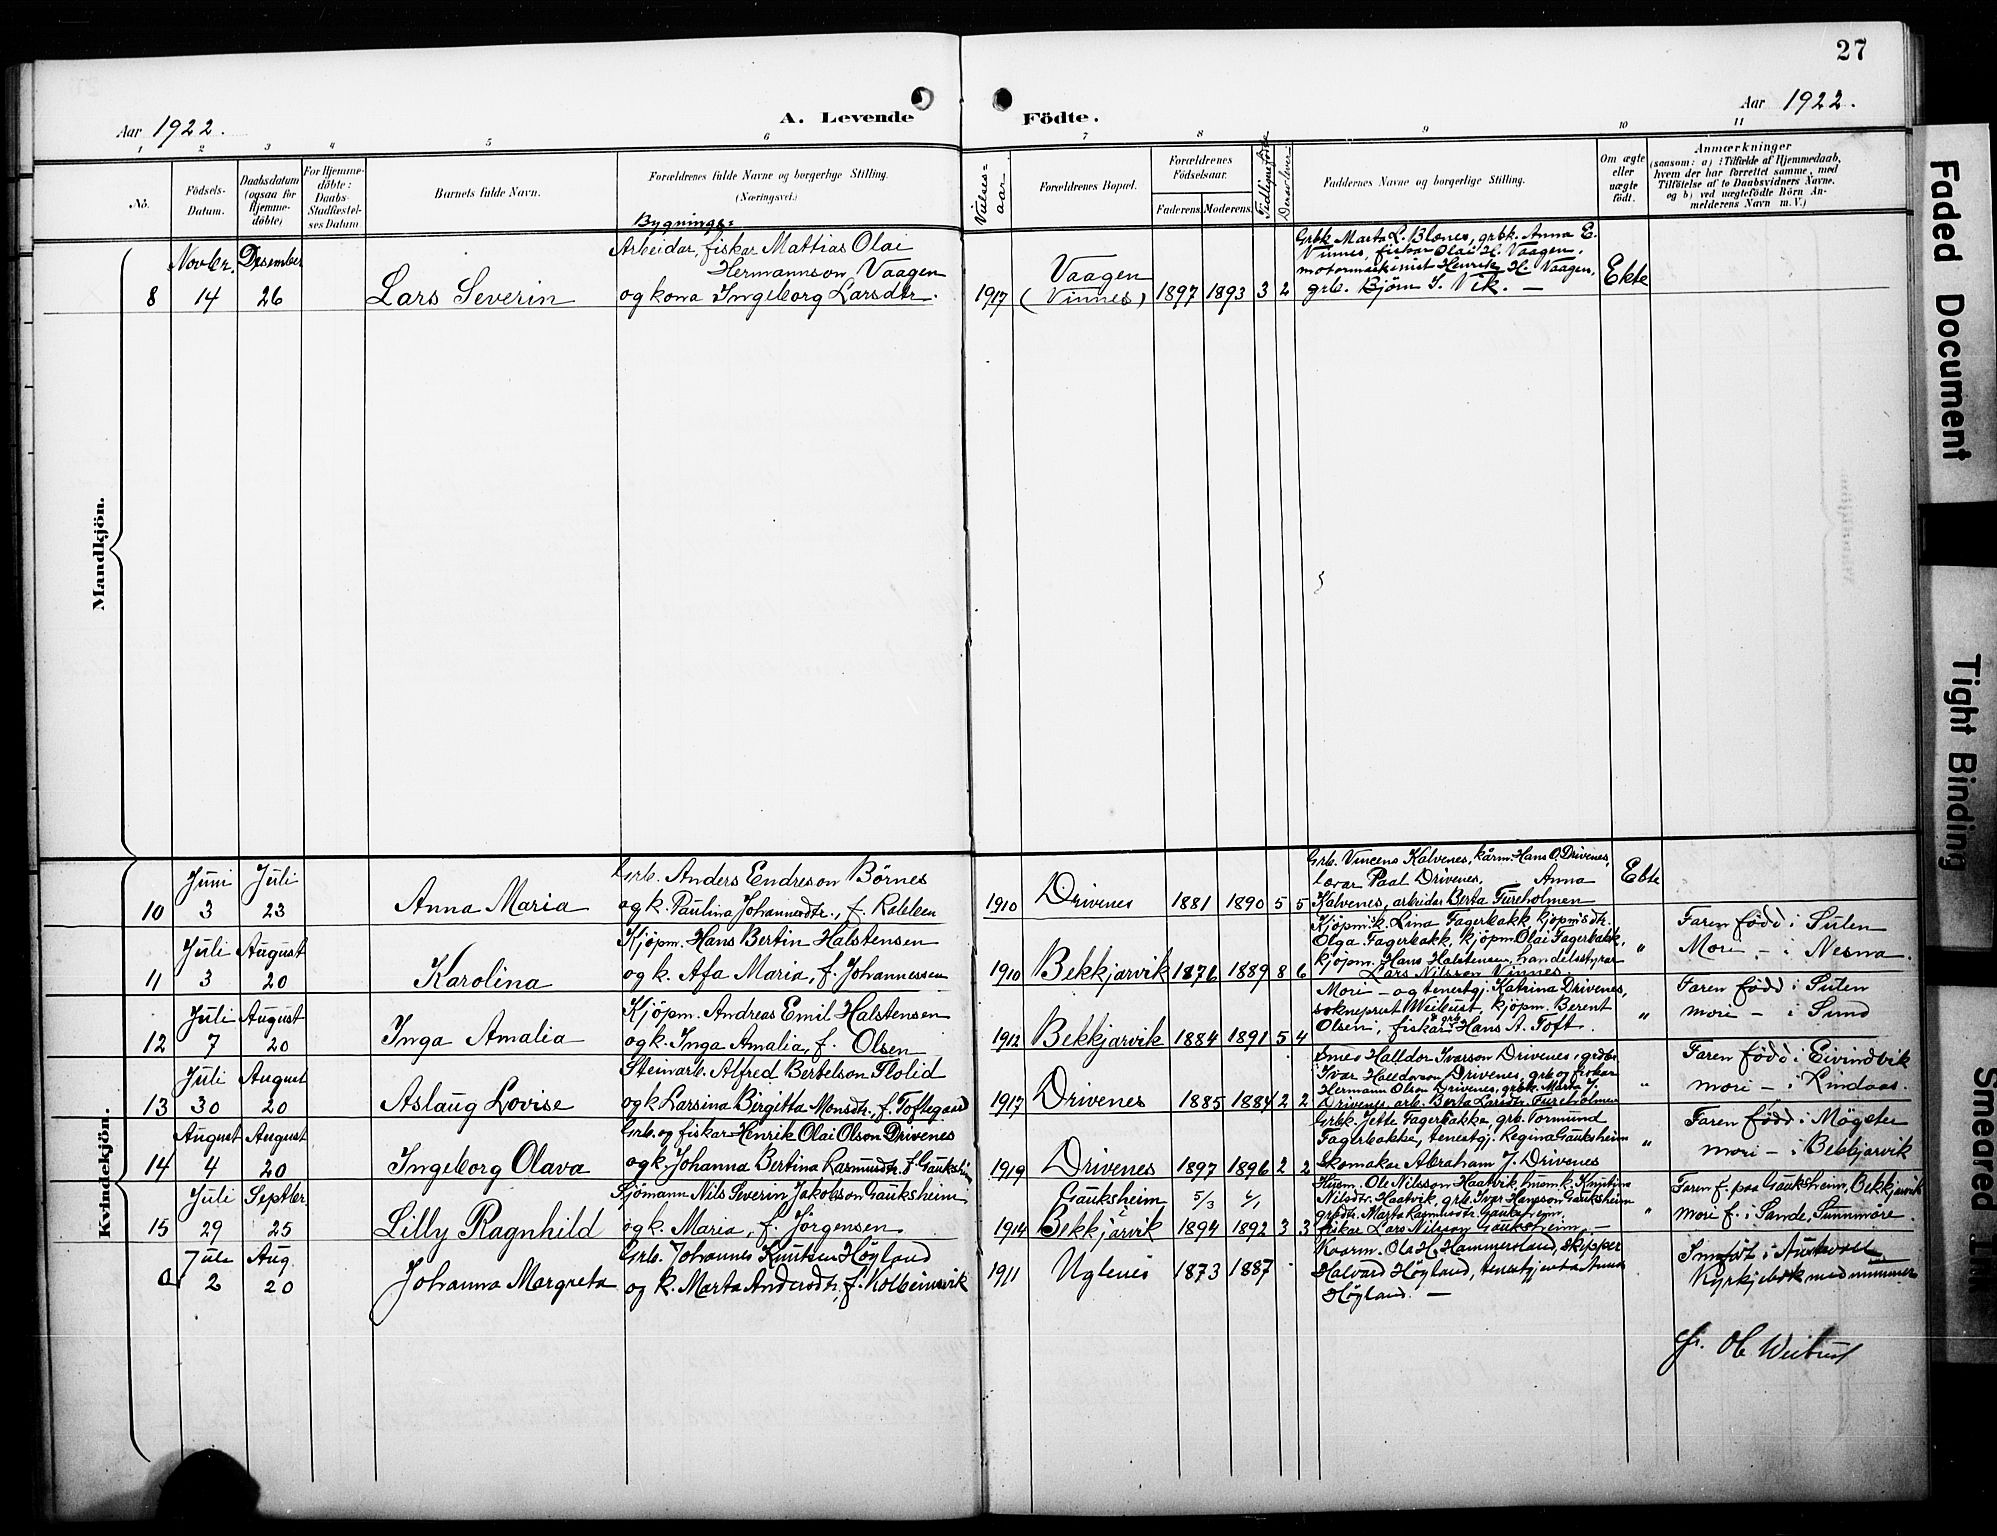 27
Aar 1922.
A. Levende
Födte.
Aar 1922.
1 2 3 4 5 6 7 8 9 10 11
No.
Födsels-
Datum.
Daabsdatum
(ogsaa for
Hjemme-
döbte)
For Hjemme-
döbte:
Daabs-
Stadfæstel-
ses Datum
Barnets fulde Navn.
Forældrenes fulde Navne og borgerlige Stilling.
(Næringsvei.)
Vielses-
aar
Forældrenes Bopæl.
Forældrenes
Födselsaar.
Faderens.
Moderens.
Tidligere födte
Derav lever
Faddernes Navne og borgerlige Stilling.
Om ægte
eller
uægte
födt.
Anmærkninger
(saasom: a) i Tilfælde af Hjemmedaab,
hvem der har forrettet samme, med
Tilföielse af to Daabsvidners Navne.
og b) ved uægtefödte Börn An-
melderens Navn m. V.)
Mandkjön.
Novbr. Desember
8 14 26
Lars Severin
Bygnings-
Arbeidar, fiskar Mattias Olai
Hermannson Vaagen
og kona Ingeborg Larsdtr.
1917
Vaagen
(Vinnes)
1897 1893 3 2
Grbk Marta L. Blænes, grbk. Anna E.
Vinnes, fiskar Olai H. Vaagen,
motormaskinist Henrik H. Vaagen,
grb. Björn I. Vik. —
Ekte
Kvindekjön.
Juni Juli
10 3 23
Anna Maria
Grb. Anders Endreson Börnes
og k. Paulina Johannesdtr., f. Rabben
1910 Drivenes 1881 1890 5 5
Grb. Vincens Kalvenes, kårm. Hans O. Drivenes,
lærar Paal Drivenes, Anna
Kalvenes, arbeidar Berta Fureholmen
Ekte
Juli August
11 3 20
Karolina
Kjöpm. Hans Bertin Halstensen
og k. Afa Maria, f. Johannessen
1910 Bekkjarvik 1876 1889 8 6
Kjöpm.sk. Lina Fagerbakk kjöpm.sdtr.
Olga Fagerbakk, kjöpm. Olai Fagerbakk,
kjöpm. Hans Halstensen, handelsstyrar
Lars Nilsson Vinnes.
"
Faren född i Sulen
Mori — i Nesna.
Juli August
12 7 20
Inga Amalia
Kjöpm. Andreas Emil Halstensen
og k. Inga Amalia, f. Olsen
1912 Bekkjarvik 1884 1891 5 4
Mori — og tenestgj. Katrina Drivenes,
sokneprest Weibust, kjöpm. Berent
Olsen, fiskar og grb Hans A. Toft.
"
Faren född i Sulen
mori — i Sund
Juli August
13 30 20
Aslaug Lovise
Steinarb. Alfred Bertelson Flolid
og k Larsina Birgitta Monsdtr. f. Toftegaard
1917 Drivenes 1885 1884 2 2
Smed Halldor Ivarson Drivenes, grdbr.
Ivar Halldorson Drivenes, grb og fiskar
Hermann Olson Drivenes, grbk. Marta J.
Drivenes arb. Berta Larsdtr. Fureholmen
"
Faren född i Eivindvik
mori — i Lindaas.
August August
14 4 20
Ingeborg Olava
Grb. og fiskar Henrik Olai Olson Drivenes
og k. Johanna Bertina Rasmusdtr. f. Gauksheim
1919 Drivenes 1897 1896 2 2
Grbk. Jette Fagerbakke, grb. Tormund
Fagerbakke, tenestgj. Regina Gauksheim
Skomakar Abraham J. Drivenes
"
Faren född i Møgster
mori — i Bekkjarvik
Juli Septbr
15 29 25
Lilly Ragnhild
Sjömann Nils Severin Jakobson Gauksheim
og k. Maria, f. Jørgensen
1914
Gauksheim
i
Bekkjarvik
5/3 6/1
1894 1892 3 3
Husm. Ole Nilsson Haatvik, husmk. Kristina
Nilsdtr. Haatvik, grb. Ivar Hansson Gauksheim
grbdtr. Marta Rasmusdtr. Gauksheim,
fiskar Lars Nilsson Gauksheim. —
"
Faren f. paa Gauksheim, Bekkjarvik
Mori f. i Sande, Sunnmöre.
Juli Aug.
a 2 20
Johanna Margreta
Grb. Johannes Knutsen Høyland
og k. Marta Andersdtr, f. Kolbeinsvik
1911 Uglenes 1873 1887
Kaarm. Ola H. Hammersland, Skipper
Halvard Høyland, tenestjenta Anna
Høyland. —
"
Innfört i Austevoll
Kyrkjebok med nummer
Weibust
Faded Document
Tight Binding
Smeared Ink